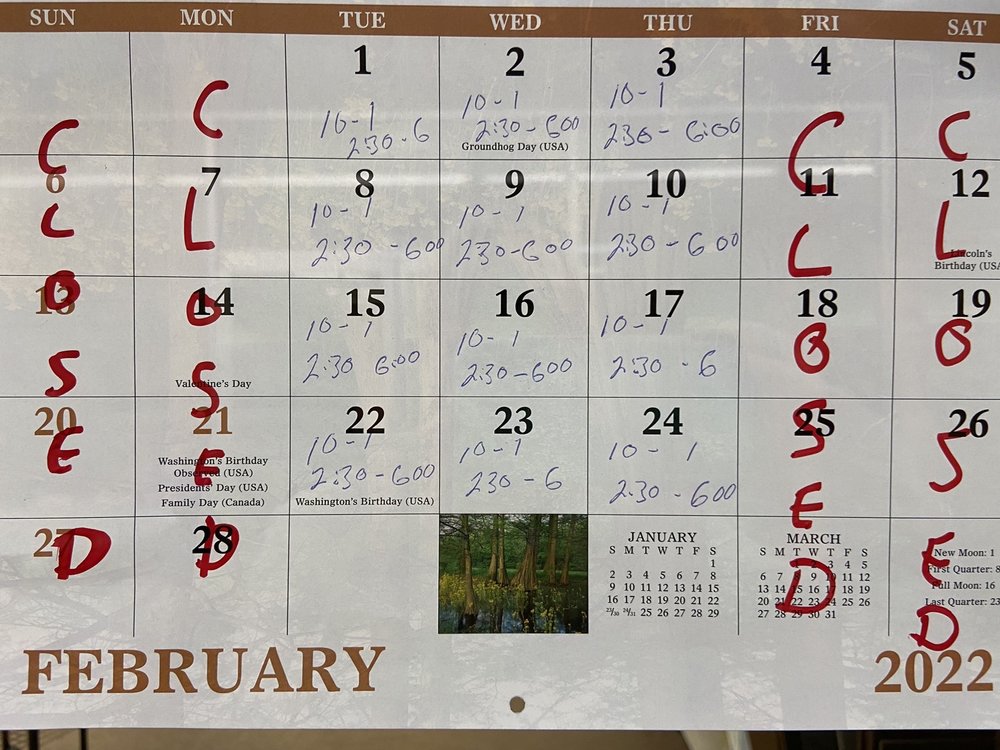 SUN MON TUE WED THU FRI SAT
1 2 3 4 5
C C C C C
10-1 10-1 10-1
2:30-6 2:30-600 230-6:00
Groundhog Day (USA)
6 7 8 9 10 11 12
L L L L
10-1 10-1 10-1
2:30-600 230-600 2:30-600
Lincoln's
Birthday (USA
13 14 15 16 17 18 19
O O O O
10-1 10-1 10-1
2:30 6:00 2:30-600 2:30-6
Valentine's Day
S S S S
20 21 22 23 24 25 26
10-1 10-1 10-1
2:30-600 230-6 2:30-600
Washington's Birthday
Observed (USA)
Presidents' Day (USA)
Family Day (Canada)
Washington's Birthday (USA)
E E E E
27 28
D D D D
JANUARY
S M T W T F S
1
2 3 4 5 6 7 8
9 10 11 12 13 14 15
16 17 18 19 20 21 22
23/30 24/31 25 26 27 28 29
MARCH
S M T W T F S
1 2 3 4 5
6 7 8 9 10 11 12
13 14 15 16 17 18 19
20 21 22 23 24 25 26
27 28 29 30 31
New Moon: 1
First Quarter: 8
Full Moon: 16
Last Quarter: 23
FEBRUARY 2022